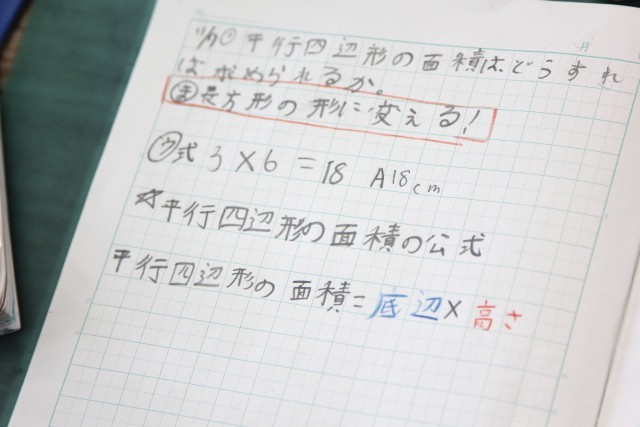 平行四辺形の面積はどうすれ
ば求められるか。
㋮長方形の形に変える!
㋒式 3×6=18 A18cm
☆平行四辺形の面積の公式
平行四辺形の面積=底辺×高さ